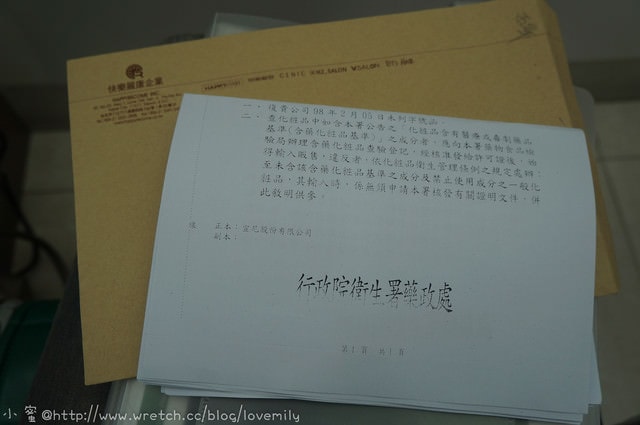 快樂麗康企業
HAPPYNICOME INC.
一、復貴公司98年2月05日未列字號函。
二、查化粧品中如含本署公告之「化粧品含有醫療或毒劇藥品
基準(含藥化粧品基準)」之成分者,應向本署藥物食品檢
驗局辦理含藥化粧品查驗登記,經核准發給許可證後,始
得輸入販售,違反者,依化粧品衛生管理條例之規定處辦;
至未含該含藥化粧品基準之成分及禁止使用成分之一般化
粧品,其輸入時,係無須申請本署核發有關證明文件,併
此敘明供參。
正本:宜花股份有限公司
副本:
行政院衛生署藥政處
第1頁 共1頁
小蜜@http://www.wretch.cc/blog/lovemily